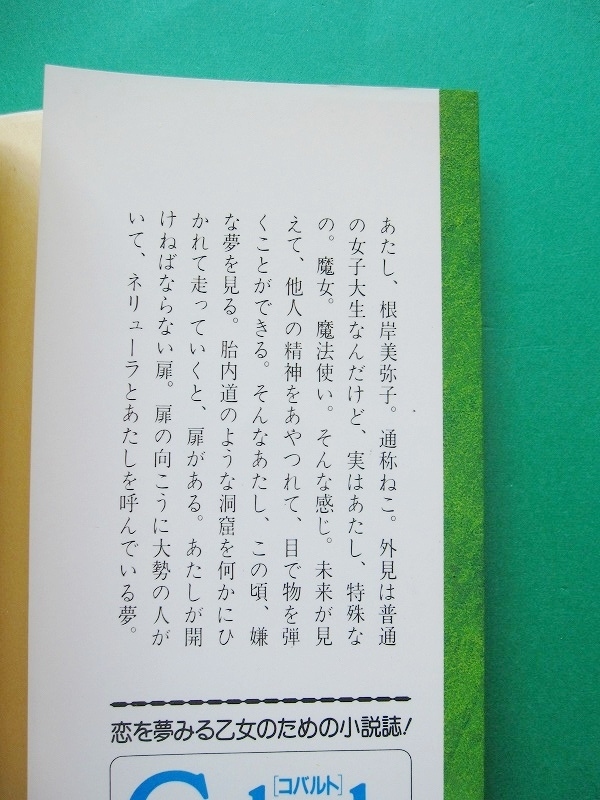 あたし、根岸美弥子。通称ねこ。外見は普通
の女子大生なんだけど、実はあたし、特殊な
の。魔女。魔法使い。そんな感じ。未来が見
えて、他人の精神をあやつれて、目で物を弾
くことができる。そんなあたし、この頃、嫌
な夢を見る。胎内道のような洞窟を何かにひ
かれて走っていくと、扉がある。あたしが開
けねばならない扉。扉の向こうに大勢の人が
いて、ネリューラとあたしを呼んでいる夢。
恋を夢みる乙女のための小説誌!
[コバルト]